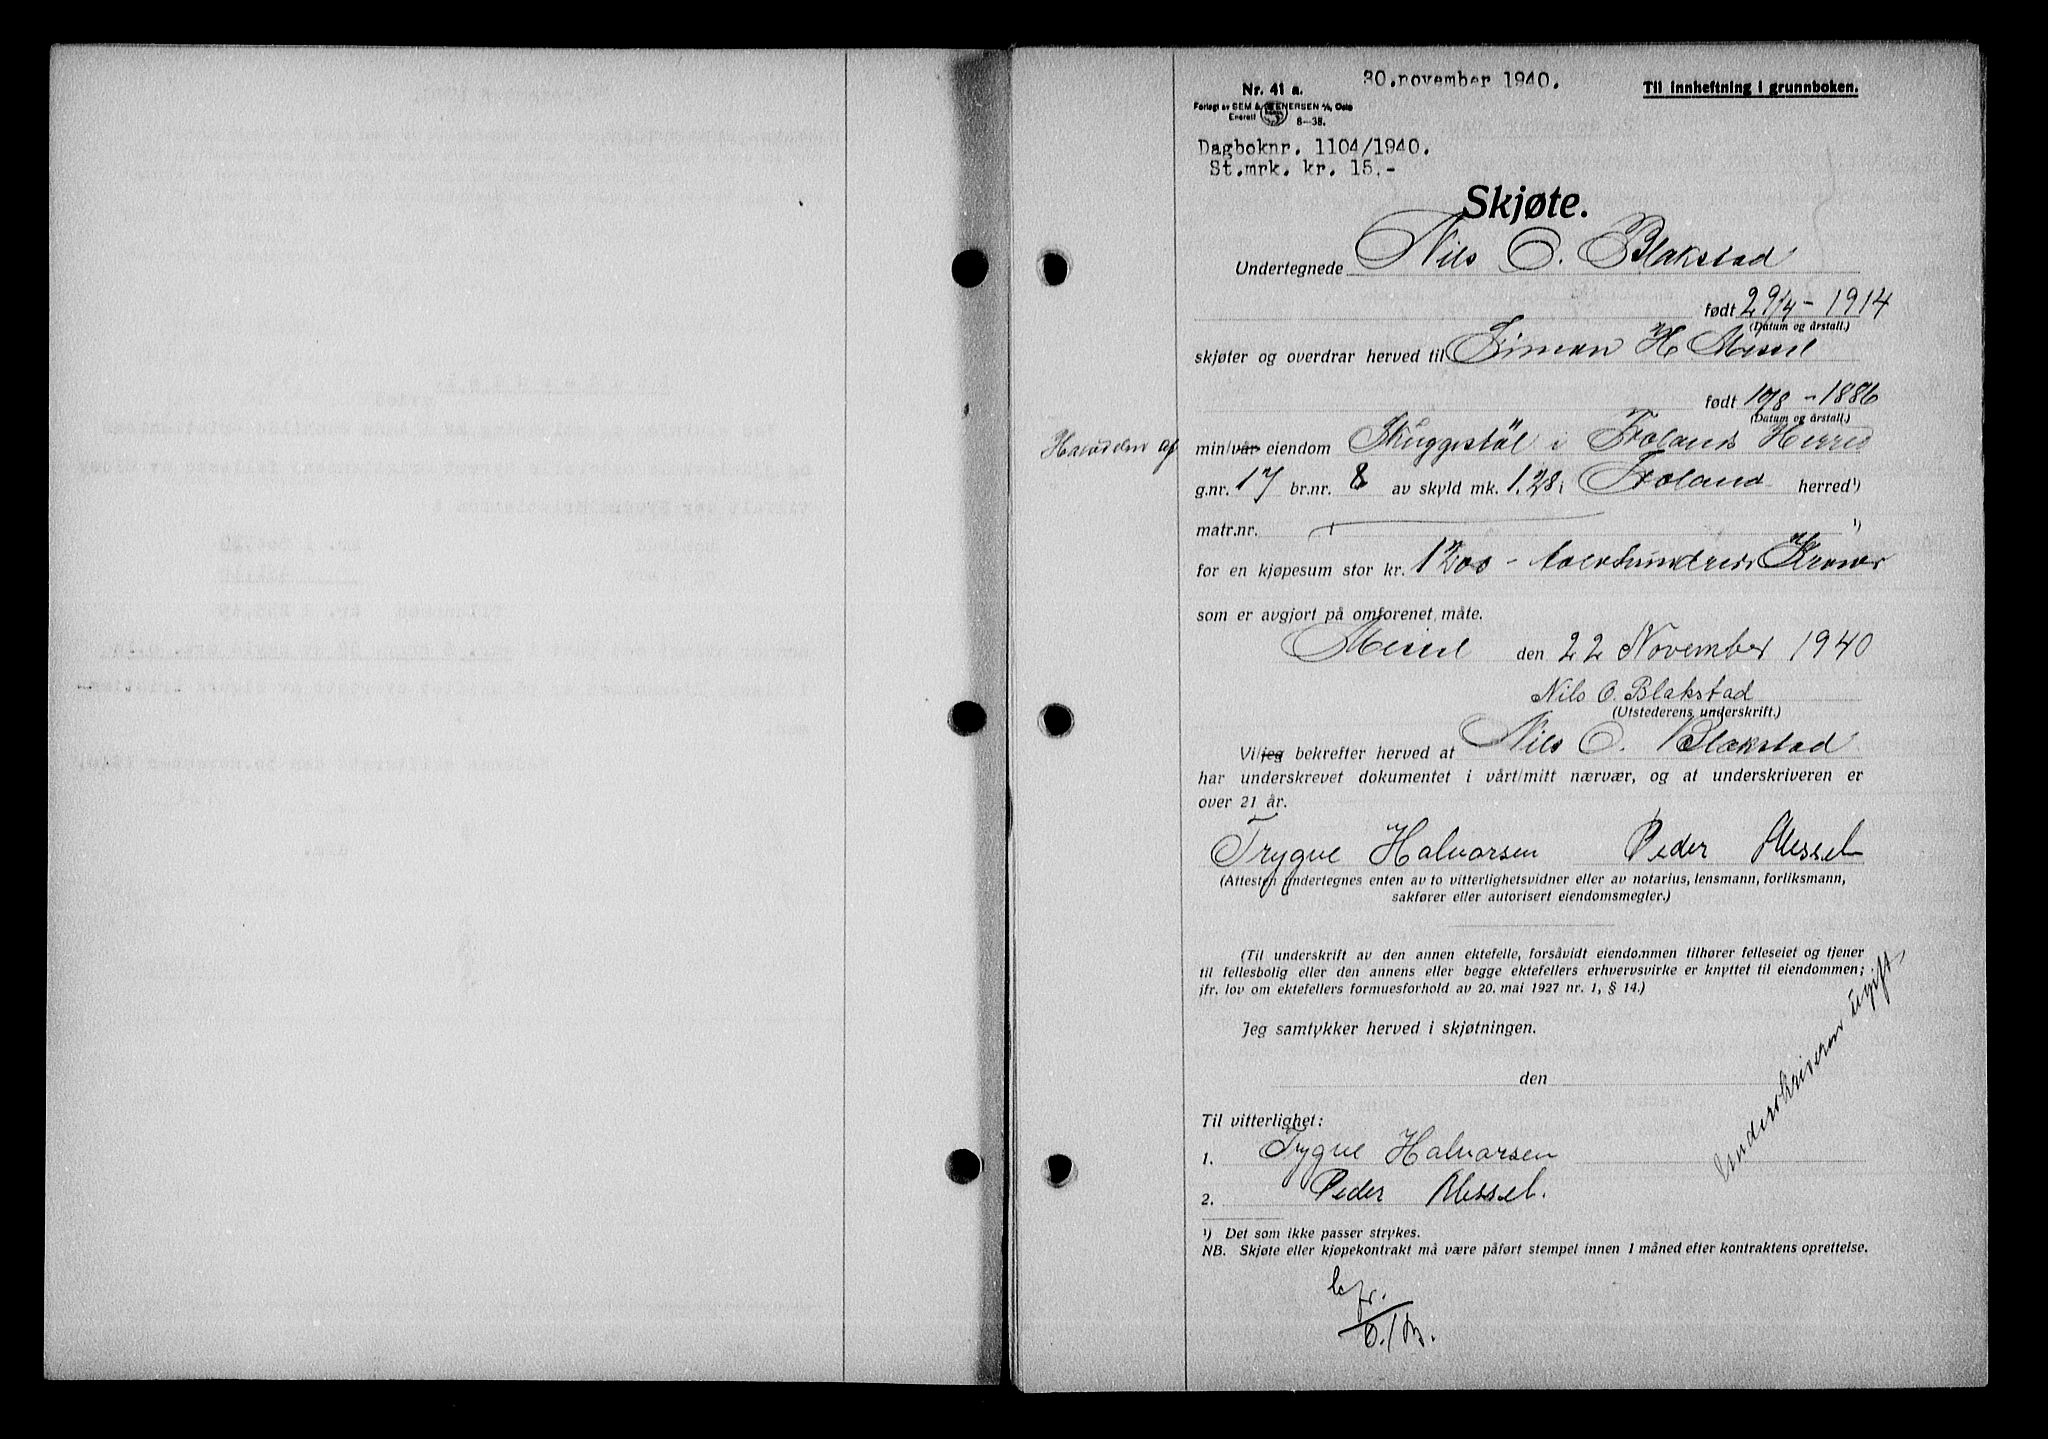 30.november 1940.
Nr. 41 a.
Til innheftning i grunnboken.
Forlagt av SEM & STENERSEN A/S, Oslo
Enerett 8—38.
Dagboknr. 1104/1940.
St.mrk. kr. 15,-
Skjøte.
Undertegnede Nils O. Blakstad
født 29/4 - 1914
(Datum og årstall.)
skjøter og overdrar herved til Simon H Messel
født 17/8 - 1886
(Datum og årstall.)
Halvdelen af min/vår eiendom Skuggestöl i Froland Herred
g.nr. 17 br.nr. 8 av skyld mk. 1.28 i Froland herred¹)
matr.nr. ¹)
for en kjøpesum stor kr. 1200 - tolvhundrede Kroner
som er avgjort på omforenet måte.
Messel den 22 November 1940
Nils O. Blakstad
(Utstederens underskrift.)
Vi/jeg bekrefter herved at Nils O. Blakstad
har underskrevet dokumentet i vårt/mitt nærvær, og at underskriveren er
over 21 år.
Trygve Halvorsen Peder Messel
(Attesten undertegnes enten av to vitterlighetsvidner eller av notarius, lensmann, forliksmann,
sakfører eller autorisert eiendomsmegler.)
(Til underskrift av den annen ektefelle, forsåvidt eiendommen tilhører felleseiet og tjener
til fellesbolig eller den annens eller begge ektefellers erhvervsvirke er knyttet til eiendommen;
jfr. lov om ektefellers formuesforhold av 20. mai 1927 nr. 1, § 14.)
Jeg samtykker herved i skjøtningen.
den
Underskriveren Ugift,
Til vitterlighet:
1. Trygve Halvorsen
2. Peder Messel.
¹) Det som ikke passer strykes.
NB. Skjøte eller kjøpekontrakt må være påført stempel innen 1 måned efter kontraktens oprettelse.